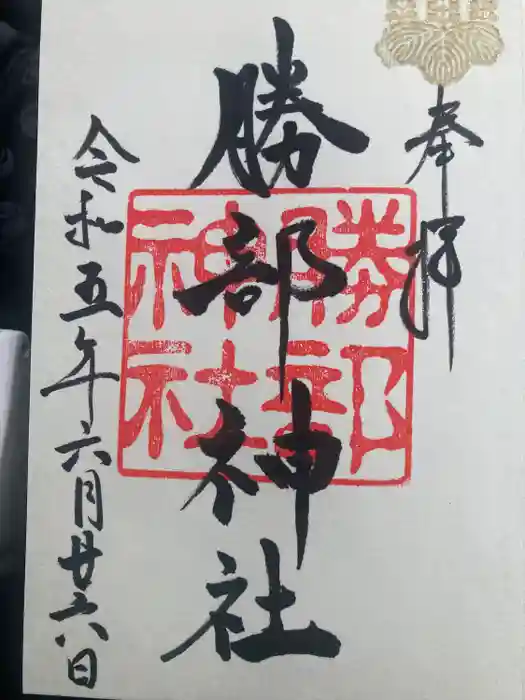 奉拝
勝部神社
勝部神社
令和五年六月廿六日